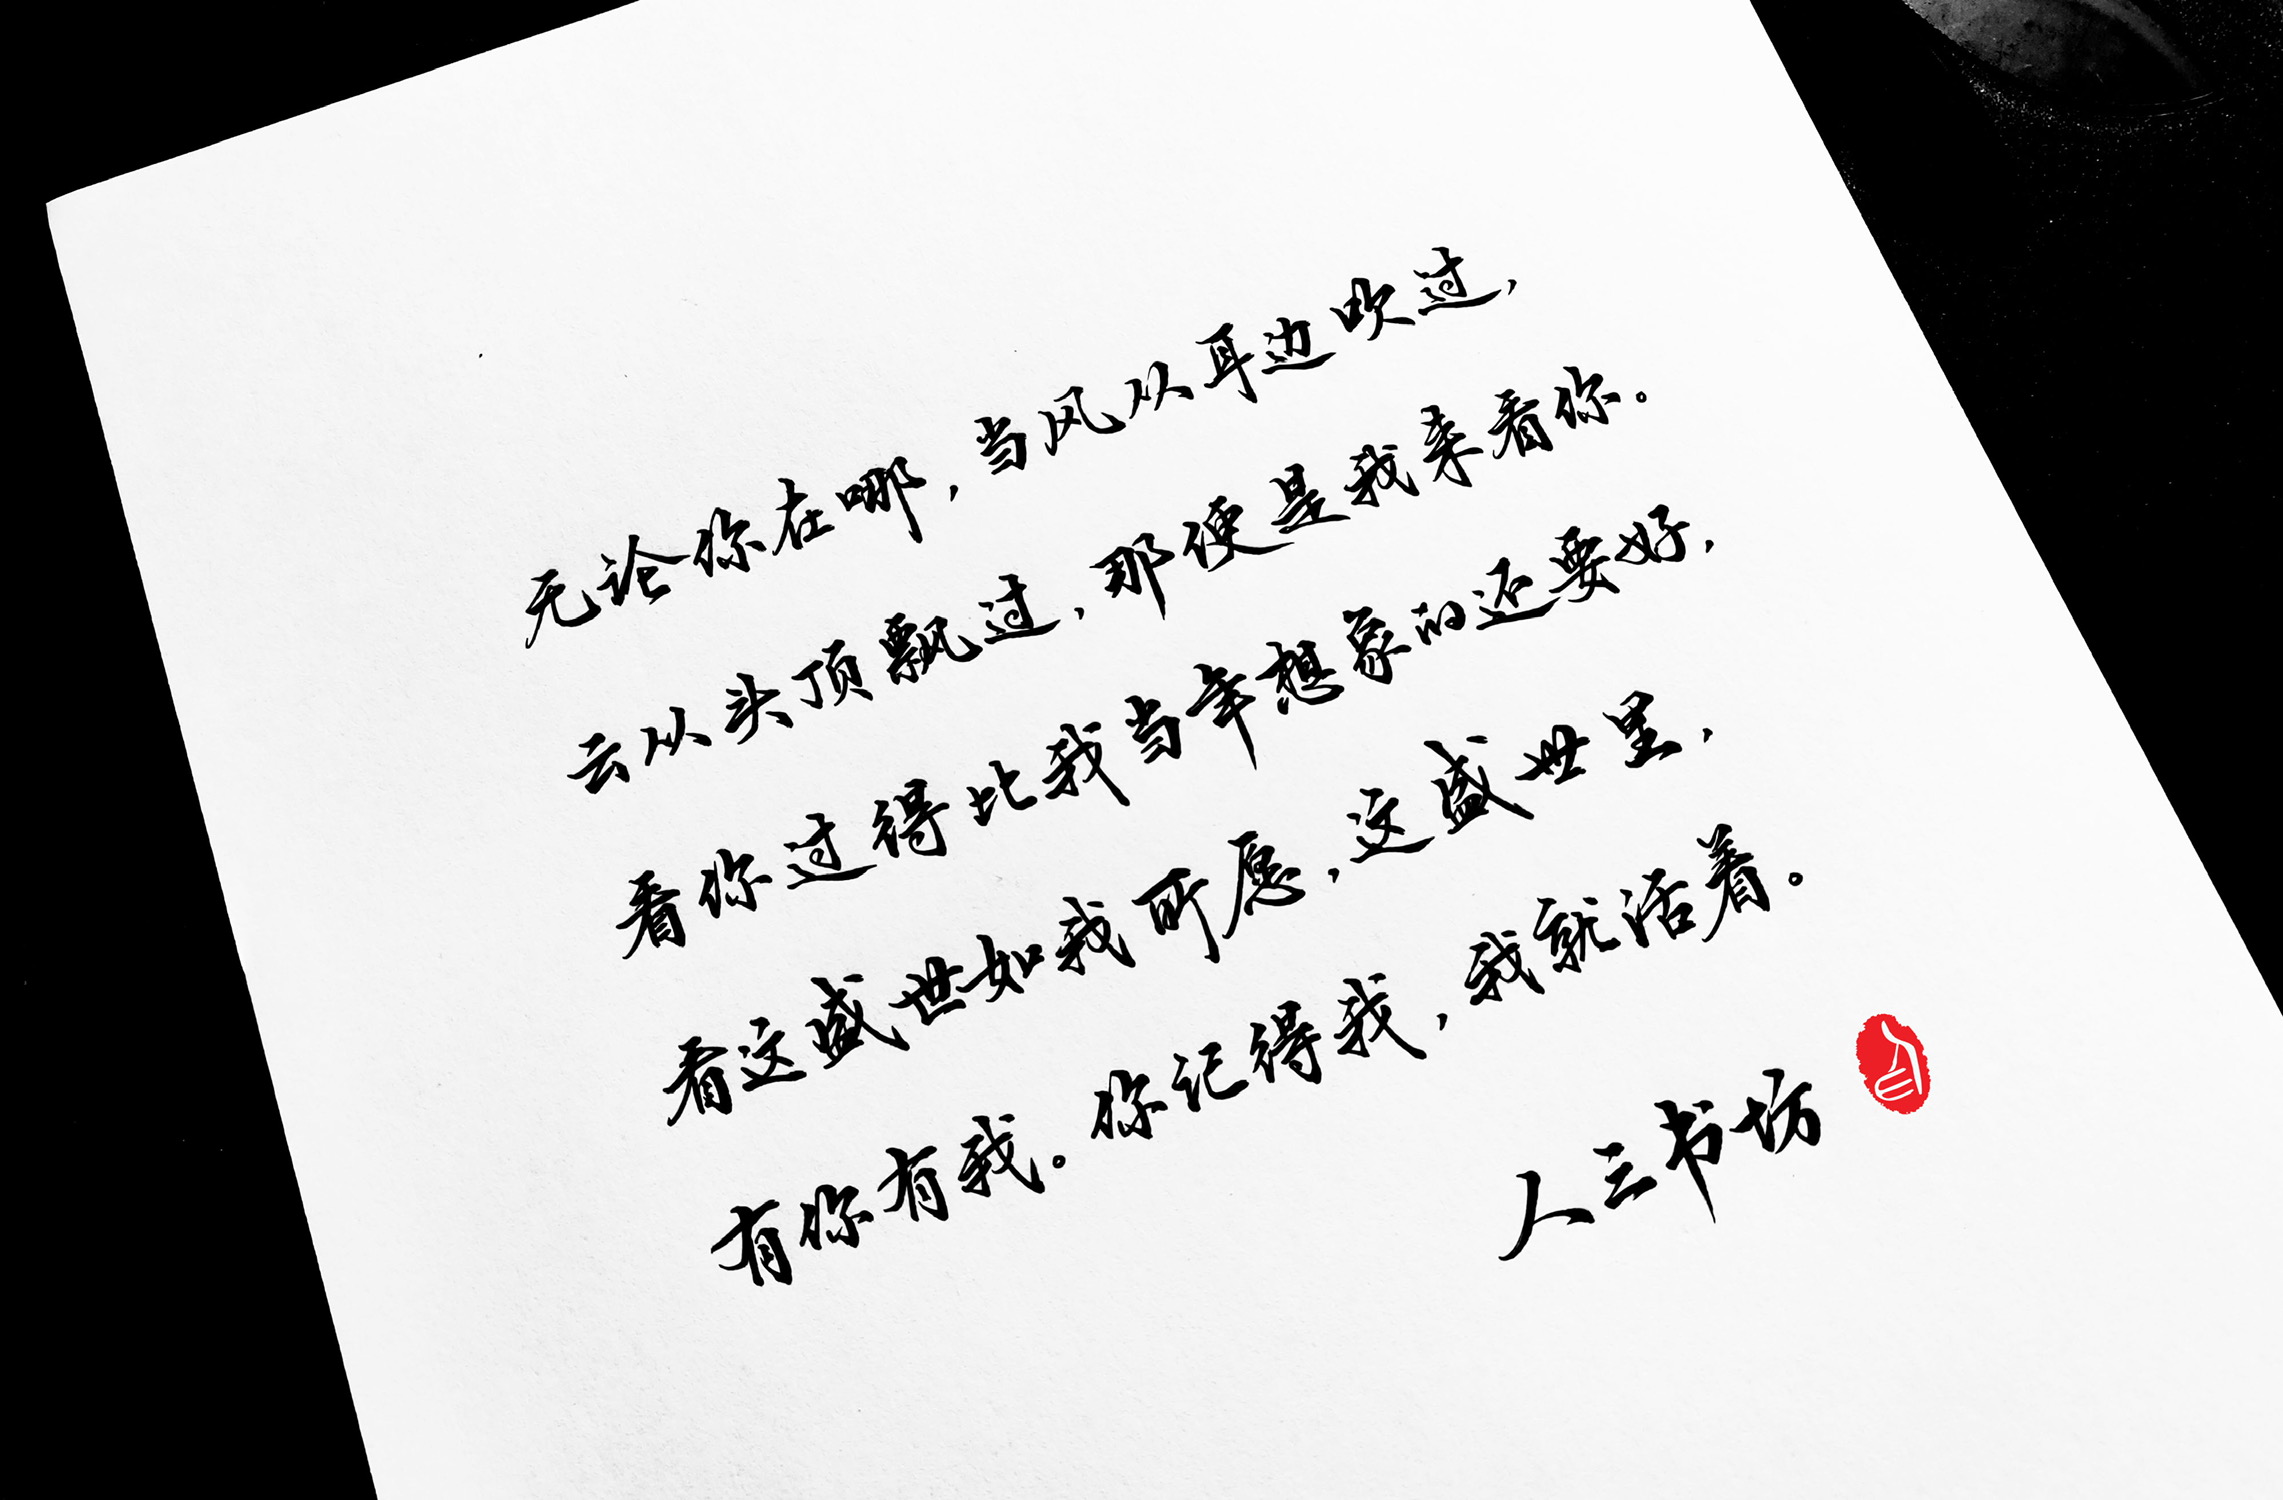 无论你在哪，当风从耳边吹过，
云从头顶飘过，那便是我来看你。
看你过得比我当年想象的还要好，
看这盛世如我所愿，这盛世里，
有你有我。你记得我，我就活着。
人三书坊